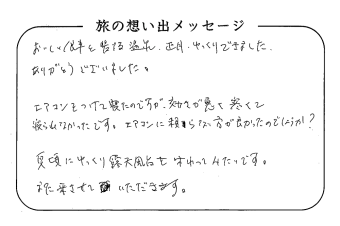 旅の想い出メッセージ
おいしい食事と温泉、正月ゆっくりできました。
ありがとうございました。
エアコンをつけて寝たのですが、効きが悪く寒くて
寝られなかったです。エアコンに頼らない方が良かったのでしょうか?
夏頃にゆっくり露天風呂を味わってみたいです。
また来させていただきます。